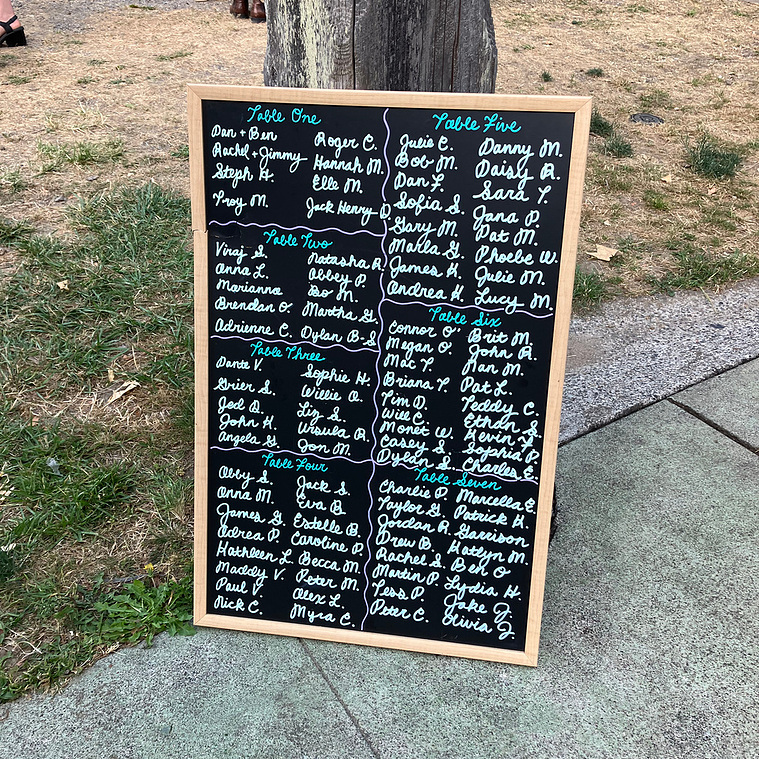 Table One
Dan + Ben
Rachel + Jimmy
Steph H.
Troy M.
Roger C.
Hannah M.
Elle M.
Jack Henry D.
Table Two
Viraj S.
Anna L.
Marianna
Brendan O.
Adrienne C.
Natasha R.
Abbey P.
Bo M.
Martha G.
Dylan B-S
Table Three
Dante V.
Grier S.
Jed D.
John H.
Angela G.
Sophie H.
Willie O.
Liz S.
Ursula R.
Jon M.
Table Four
Abby S.
Anna M.
James G.
Adrea P.
Kathleen L.
Maddy V.
Paul V.
Nick C.
Jack S.
Eva B.
Estelle B.
Caroline P.
Becca M.
Peter M.
Alex L.
Myra C.
Table Five
Julie C.
Bob M.
Dan F.
Sofia S.
Gary M.
Marla G.
James K.
Andrea K.
Danny M.
Daisy R.
Sara T.
Jana P.
Pat M.
Phoebe W.
Julie M.
Lucy M.
Table Six
Connor O'
Megan O.
Mac T.
Briana T.
Tim D.
Will C.
Monet W.
Casey S.
Dylan S.
Brit M.
John R.
Nan M.
Pat L.
Teddy C.
Ethan S.
Kevin
Sophia P.
Charles E.
Table Seven
Charlie P.
Taylor G.
Jordan R.
Drew B.
Rachel S.
Martin P.
Tess P.
Peter C.
Marcella E.
Patrick K.
Garrison
Katlyn M.
Ben O
Lydia H.
Jake J.
Olivia J.